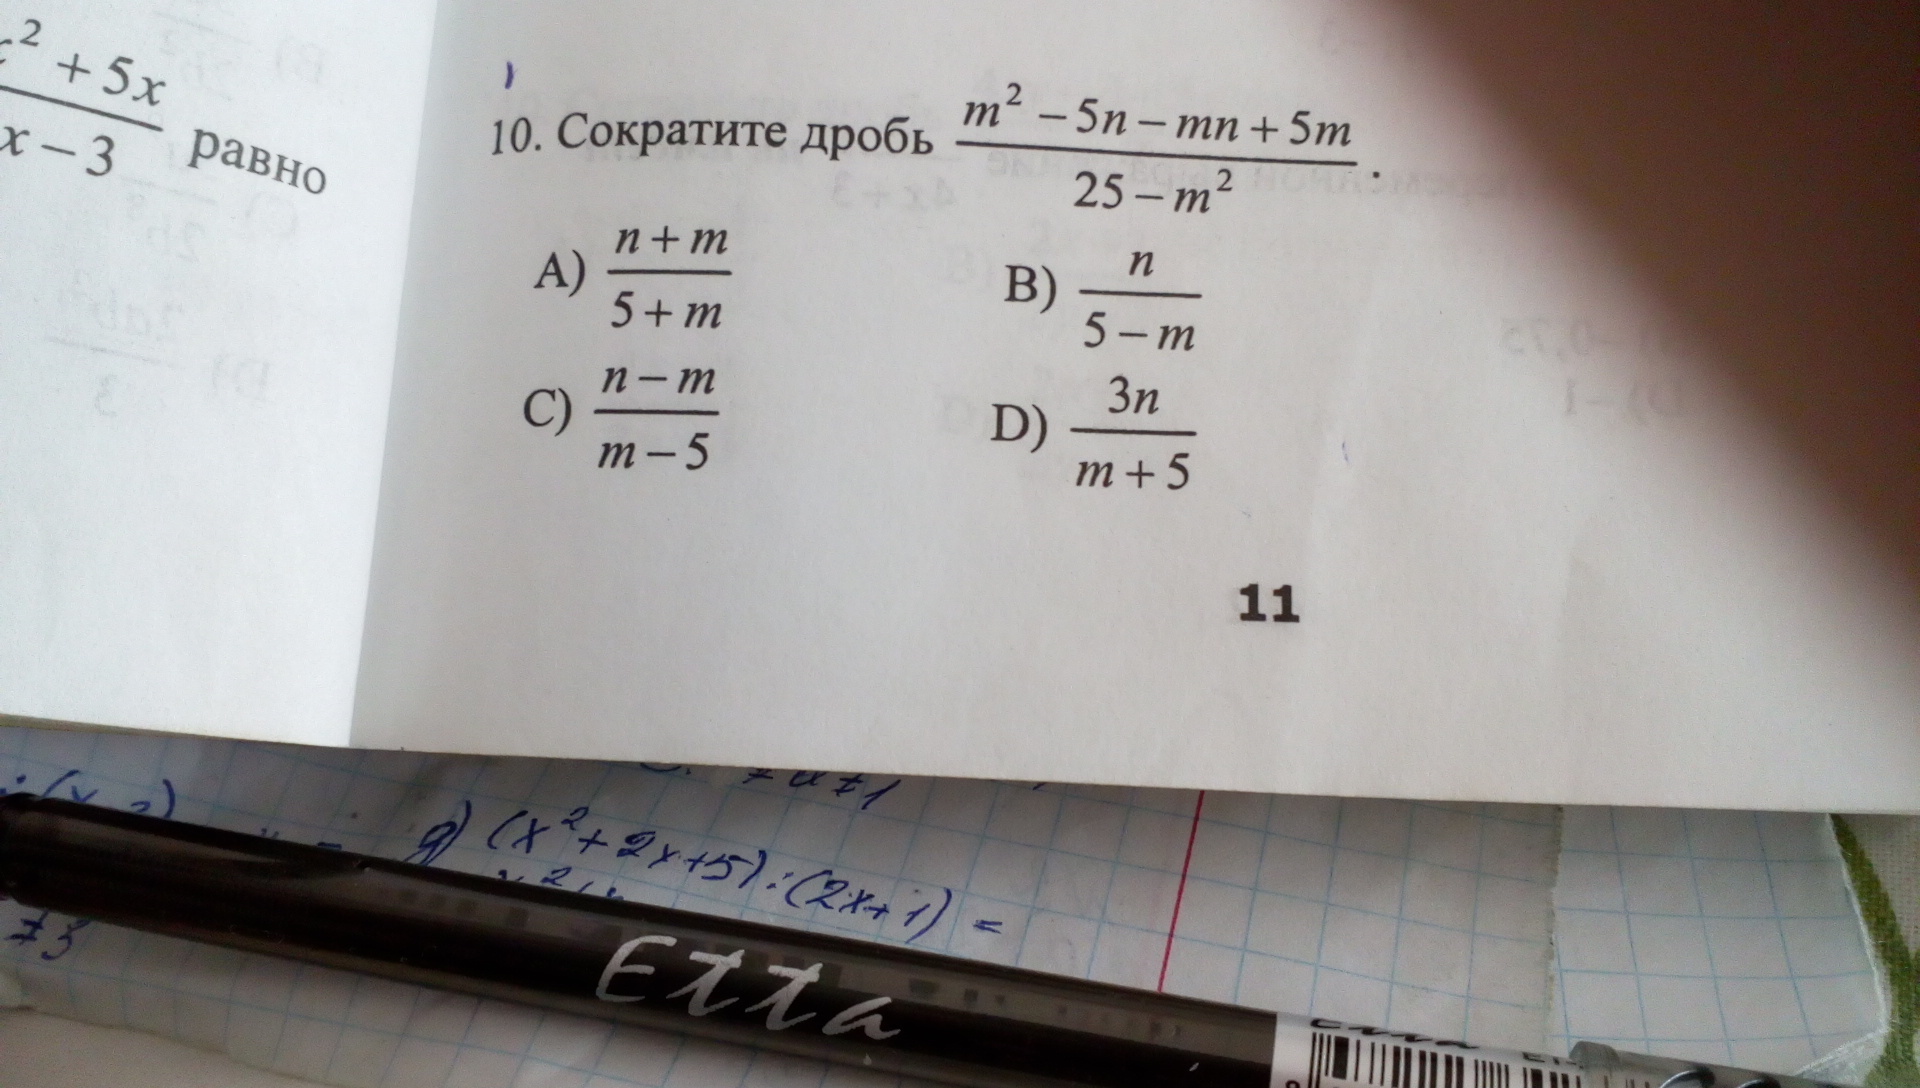 x² + 5x
x − 3
равно
10. Сократите дробь
m² − 5n − mn + 5m
25 − m²
.
A) n + m
5 + m
B) n
5 − m
C) n − m
m − 5
D) 3n
m + 5
11
≠1
g) (x² + 2x + 5) : (2x + 1) =
≠3
Etta